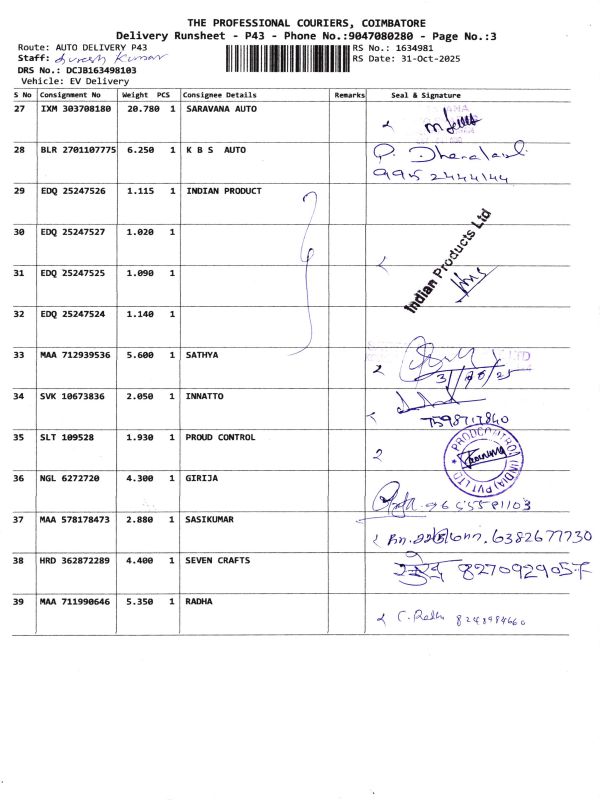 THE PROFESSIONAL COURIERS, COIMBATORE
Delivery Runsheet - P43 - Phone No.:9047080280 - Page No.:3
Route: AUTO DELIVERY P43
RS No.: 1634981
Staff: Suresh Kumar
RS Date: 31-Oct-2025
DRS No.: DCJB163498103
Vehicle: EV Delivery
S No Consignment No Weight PCS Consignee Details Remarks Seal & Signature
27 IXM 303708180 20.780 1 SARAVANA AUTO
28 BLR 2701107775 6.250 1 K B S AUTO
9952444144
29 EDQ 25247526 1.115 1 INDIAN PRODUCT
30 EDQ 25247527 1.020 1
Indian Products Ltd
31 EDQ 25247525 1.090 1
32 EDQ 25247524 1.140 1
33 MAA 712939536 5.600 1 SATHYA LTD
34 SVK 10673836 2.050 1 INNATTO
7598717840
35 SLT 109528 1.930 1 PROUD CONTROL
(INDIA) PVT LTD
36 NGL 6272720 4.300 1 GIRIJA
37 MAA 578178473 2.880 1 SASIKUMAR 6382677730
38 HRD 362872289 4.400 1 SEVEN CRAFTS 8270929057
39 MAA 711990646 5.350 1 RADHA